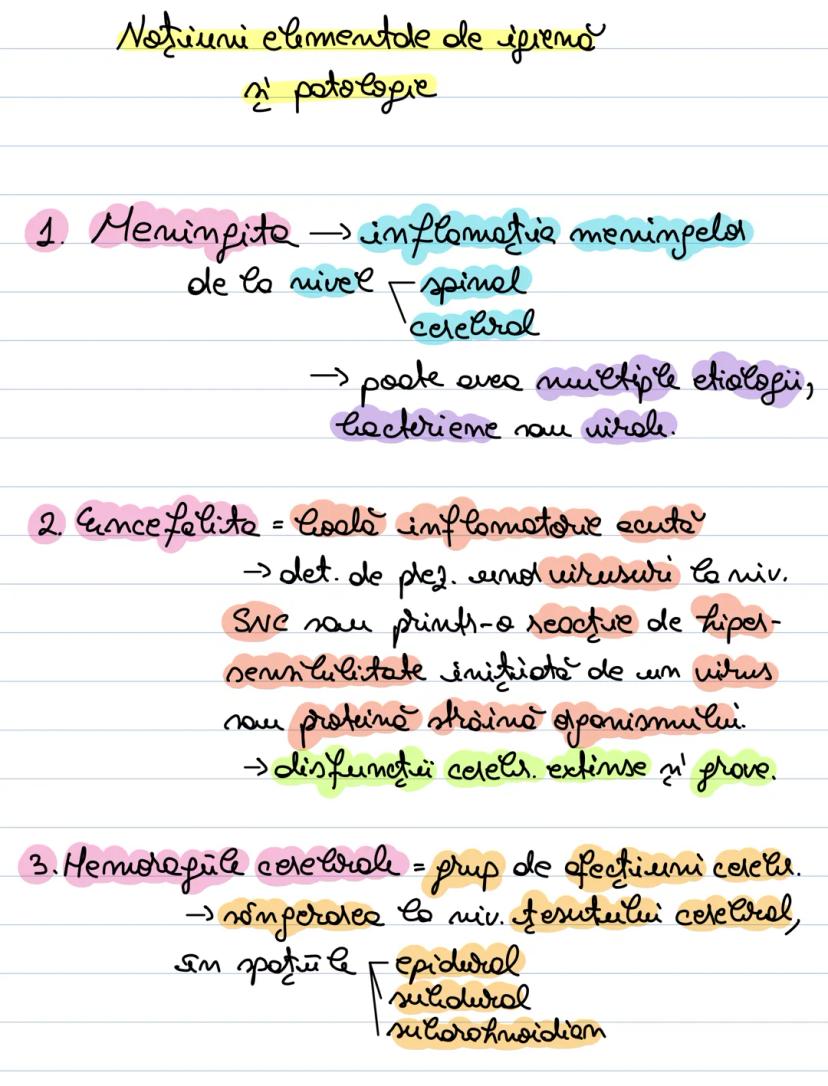 Noțiuni elementale de igienă
și patologie
1. Meningita → inflamația meningelor
de la nivel spinal
cerebral
→ poate avea multiple etiologii,
bacteriene sau virale.
2. Encefalita = boală inflamatorie acută
→ det. de prez. unor virusuri la niv.
SNC sau printr-o reacție de hiper-
sensibilitate inițiată de un virus
sau proteină străină organismului.
→ disfuncții cerebr. extinse și grave.
3. Hemoragiile cerebrale = grup de afecțiuni cerebr.
→ sângerarea la niv. țesutului cerebral,
în spațiile epidural
subdural
subarahnoidian